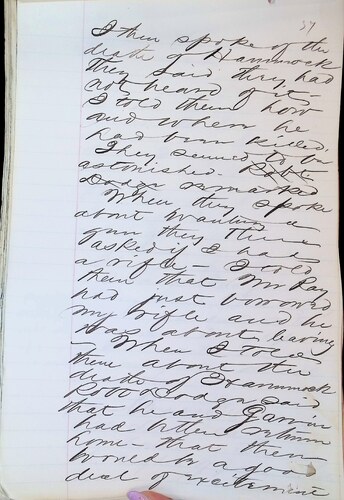 57
I then spoke of the
death of Hammock
they said they had
not heard of it -
I told them how
and when he
had been killed.
They seemed to be
astonished. Robt
Dodgen remarked
When they spoke
about wanting a
gun they then
asked if I had
a rifle - I told
them that Mr Ray
had just borrowed
my rifle and he
was about leaving
When I told
them about the
death of Hammock
Robt Dodgen said
that he and Garvin
had better return
home - that there
would be a good
deal of excitement